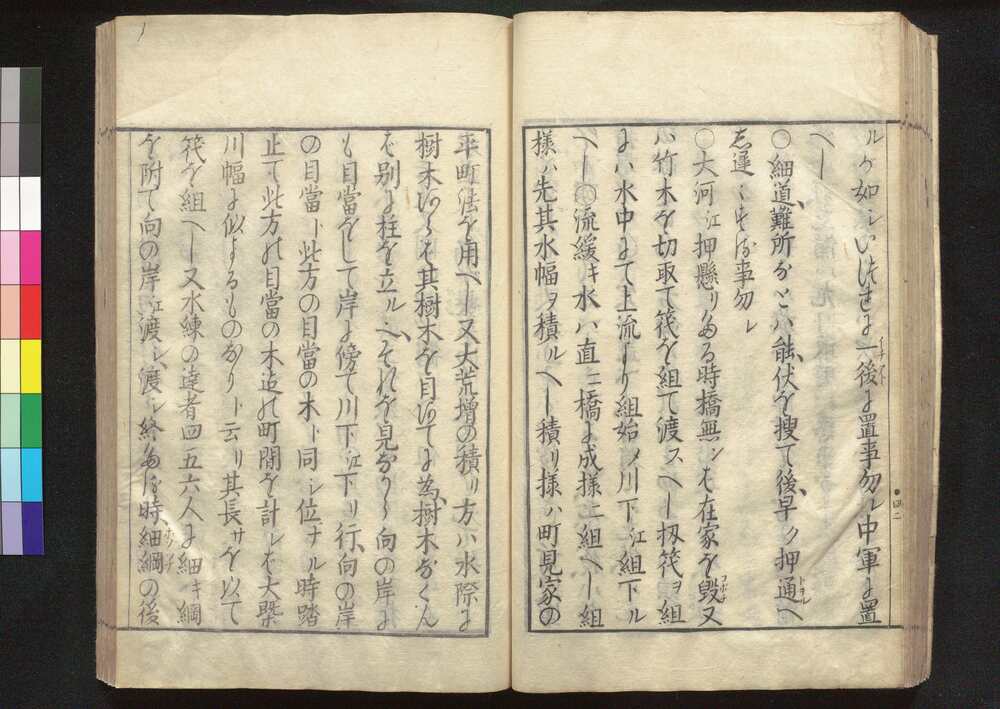 ルガ如シいはんまに一後に置事勿レ中軍に置
へし
○細道難所などハ能伏を捜て後早ク押通へ
し遅々する事勿レ
○大河江押懸りたる時橋無レバ在家を毀又
ハ竹木を切取て筏を組て渡スヘし扨筏ヲ組
にハ水中にて上流より組始メ川下江組下ル
へし○流緩キ水ハ直ニ橋に成様ニ組へし組
様ハ先其水幅ヲ積ルへし積リ様ハ町見家の
平町法を用べし又大荒増の積リ方ハ水際に
樹木あらば其樹木を目あてに為樹木なくん
ば別に柱を立ルべしそれを見ながら向の岸に
も目当をして岸に傍て川下江下リ行向の岸
の目当と此方の目当の木と同シ位ナル時踏
止て此方の目当の木迄の町間を計レば大槩
川幅に似よるものなりと云リ其長サを以て
筏を組へし又水練の達者四五六人に細キ綱
を附て向の岸江渡シ渡シ終たる時細綱の後
トヲル
コボチ
ホソヅナ
四二